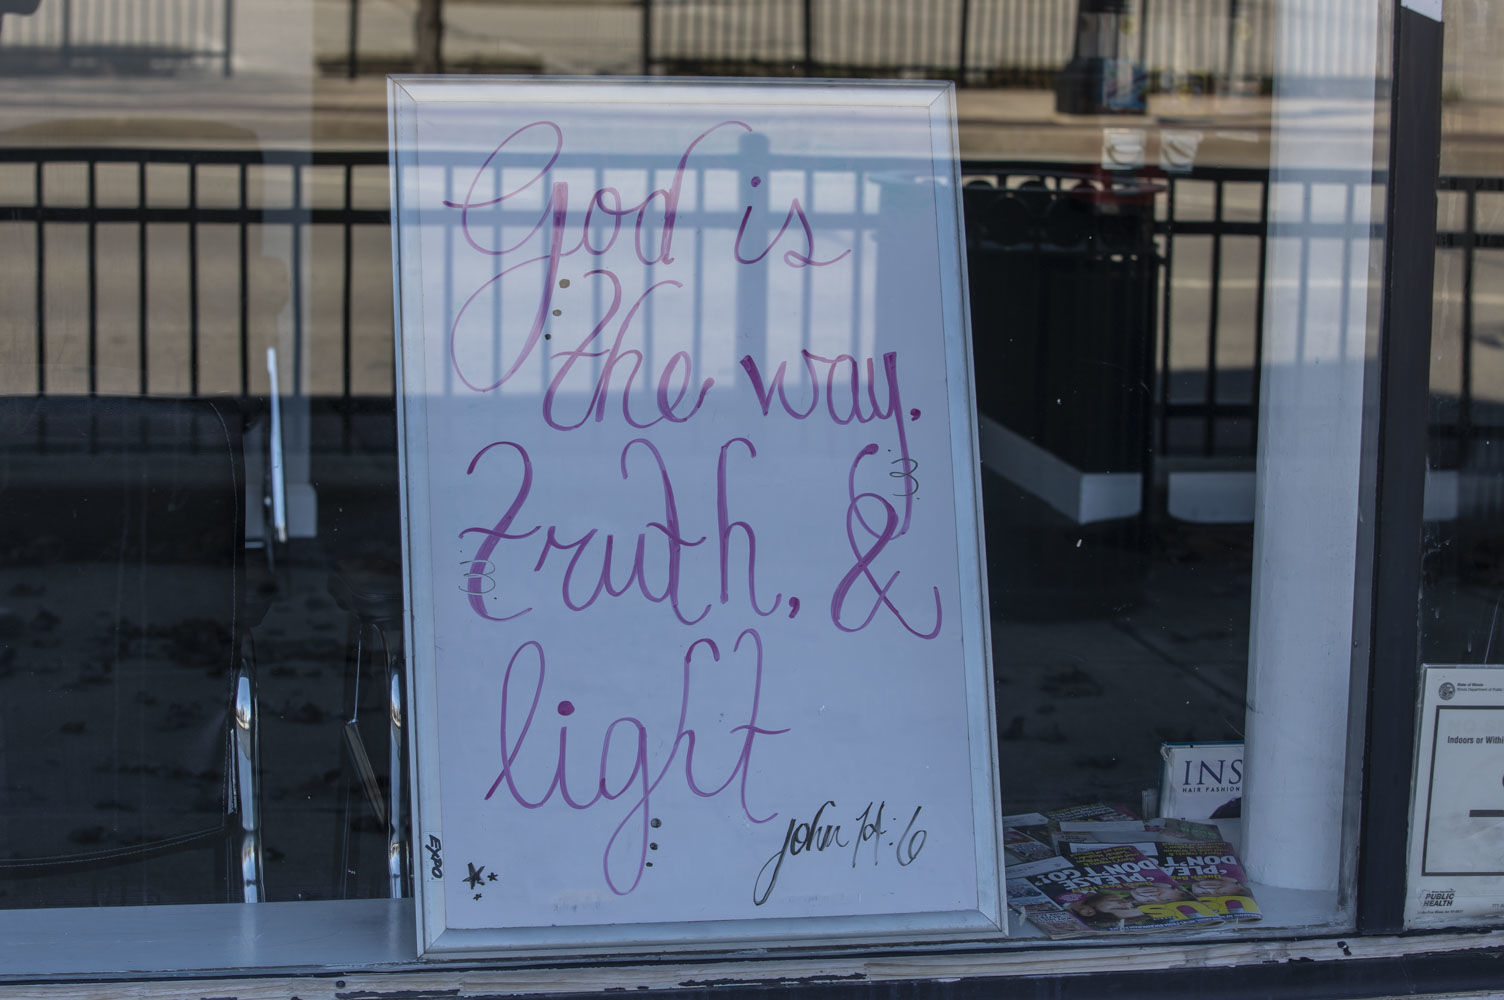 God is
the way,
truth, &
light
john 14:6
EXPO
INS
HAIR FASHION
"PLEASE
DON'T GO!"
"PLEASE
DON'T GO!"
Us
State of Illinois
Indoors or Withi
PUBLIC
HEALTH